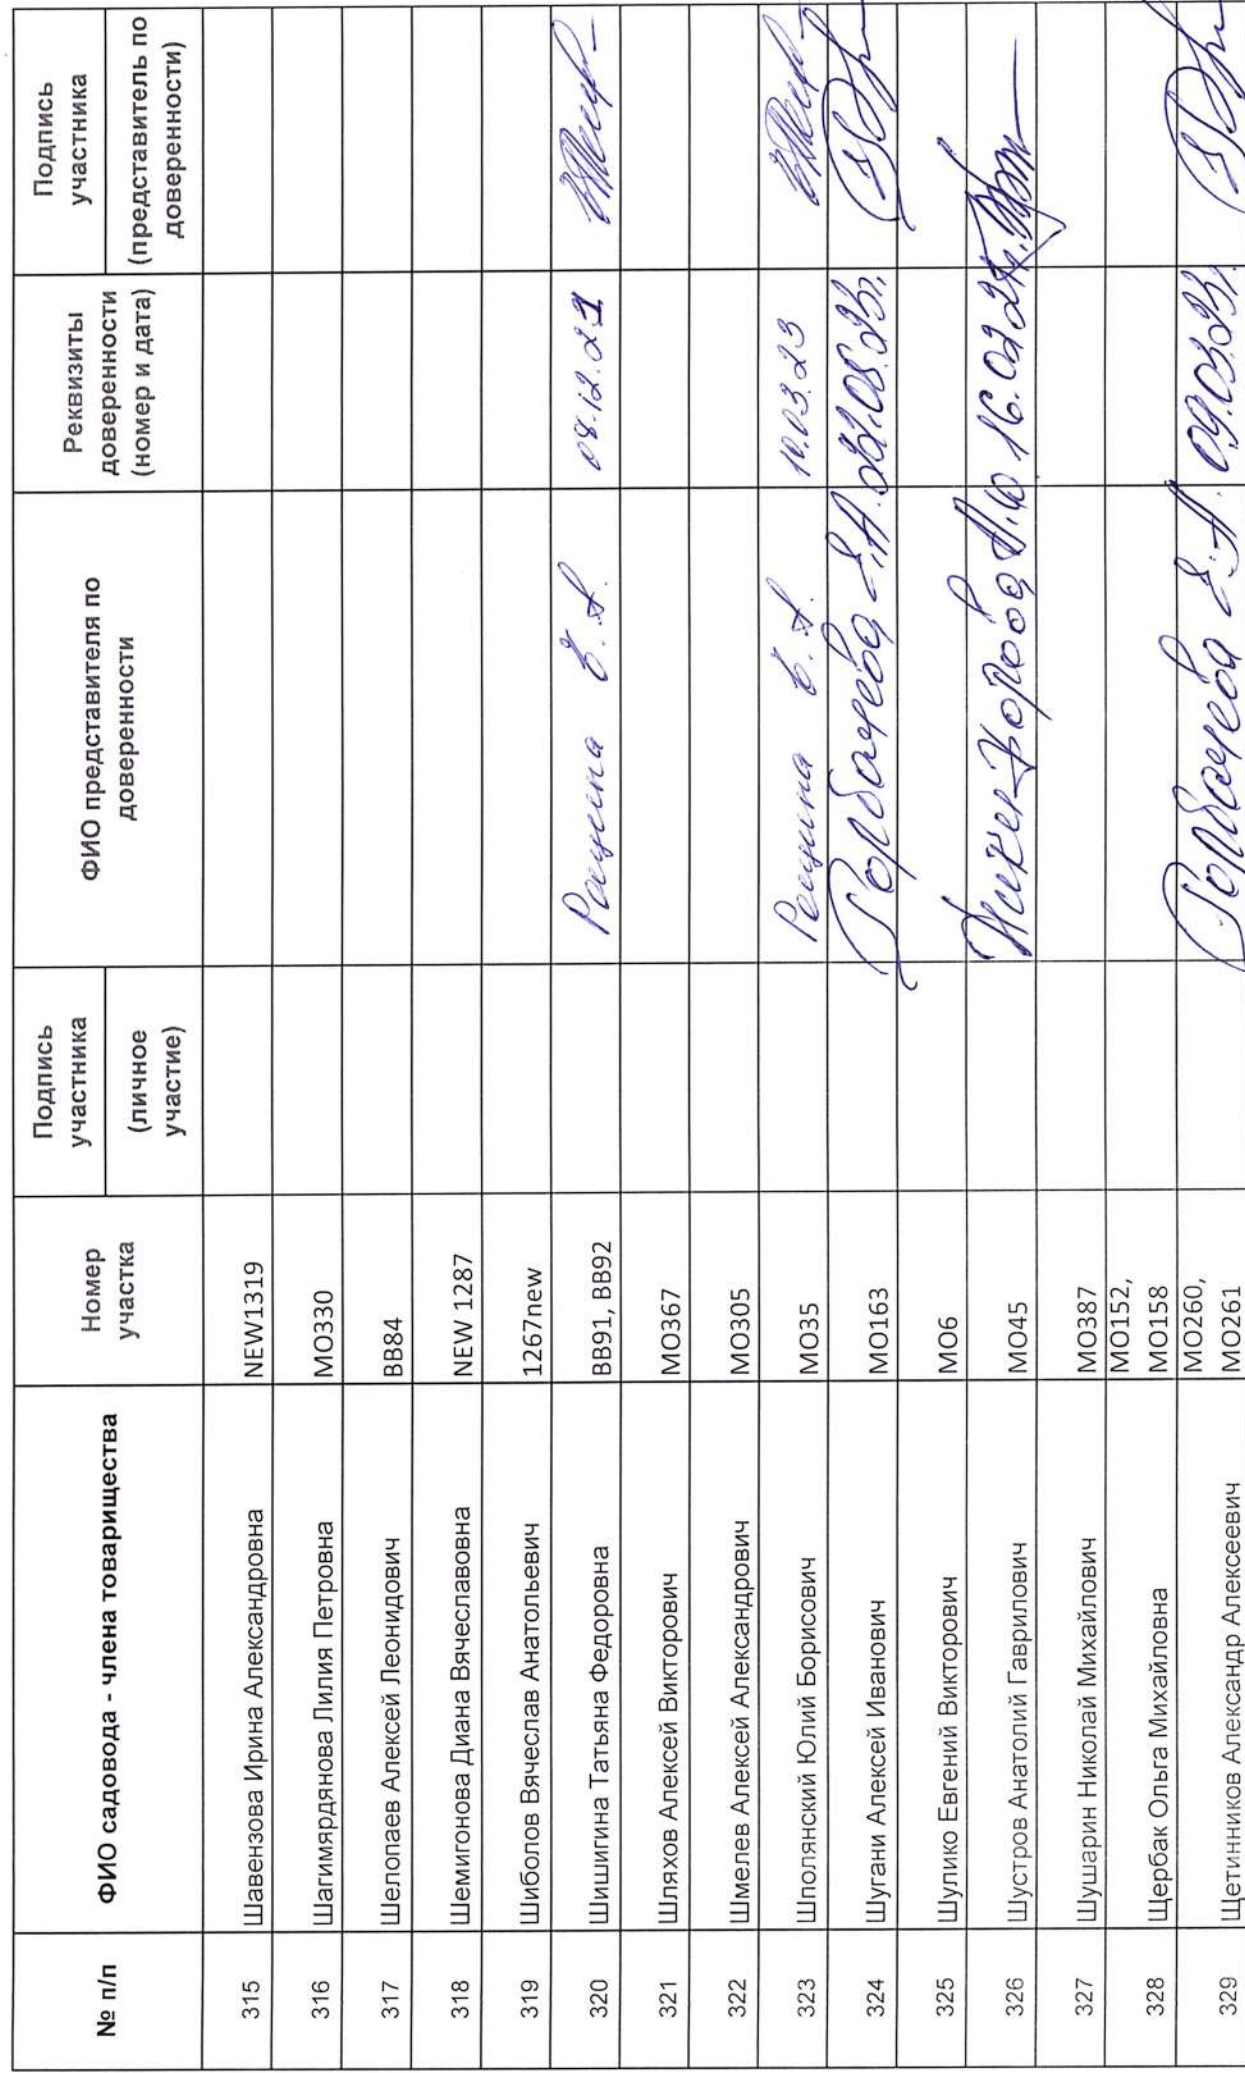 № п/п
ФИО садовода - члена товарищества
Номер участка
Подпись участника
(личное участие)
ФИО представителя по доверенности
Реквизиты доверенности (номер и дата)
Подпись участника
(представитель по доверенности)
315 Шавензова Ирина Александровна NEW1319
316 Шагимярдянова Лилия Петровна МО330
317 Шелопаев Алексей Леонидович ВВ84
318 Шемигонова Диана Вячеславовна NEW 1287
319 Шиболов Вячеслав Анатольевич 1267new
320 Шишигина Татьяна Федоровна ВВ91, ВВ92 Рощина Е. А. 08.12.21
321 Шляхов Алексей Викторович МО367
322 Шмелев Алексей Александрович МО305
323 Шполянский Юлий Борисович МО35 Рощина Е. А. 10.03.23
324 Шугани Алексей Иванович МО163 Горбачева Е.А. 22.08.23г.
325 Шулико Евгений Викторович МО6
326 Шустров Анатолий Гаврилович МО45 Никифорова А.Ю 16.02.24г.
327 Шушарин Николай Михайлович МО387
328 Щербак Ольга Михайловна МО152,
МО158
329 Щетинников Александр Алексеевич МО260,
МО261 Горбачева Е.А. 09.03.23г.